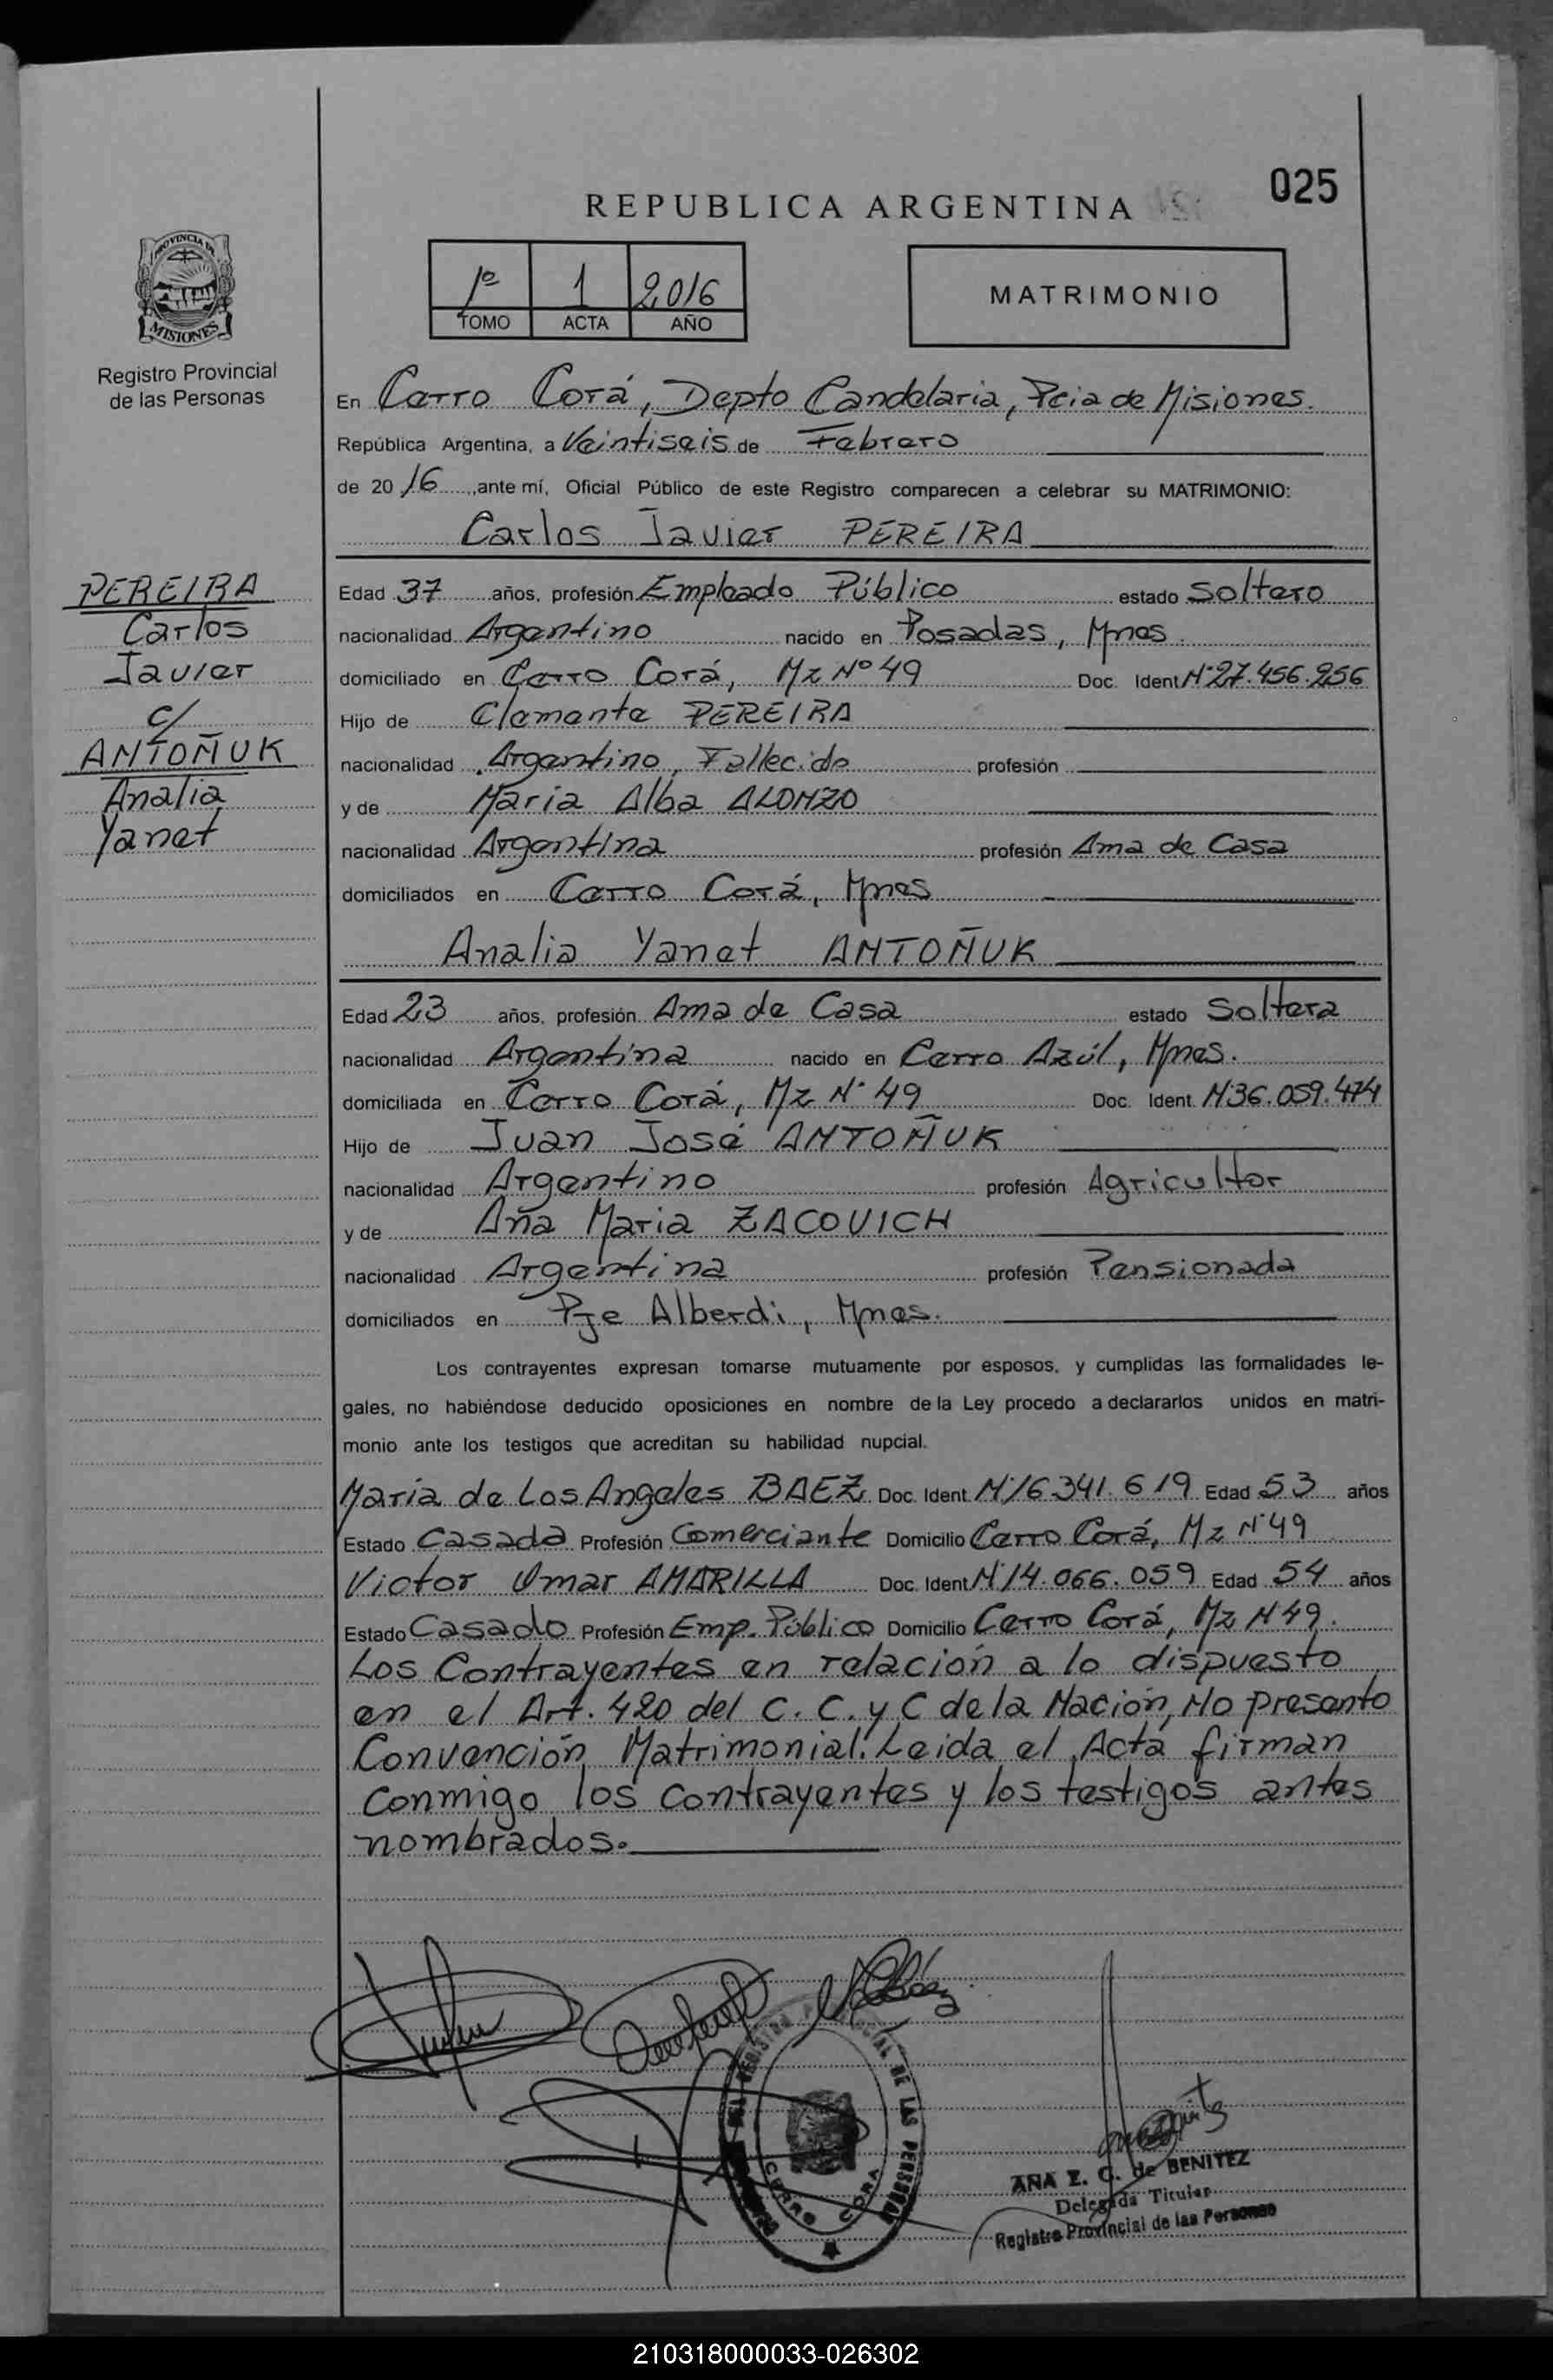 025
REPUBLICA ARGENTINA
PROVINCIA DE
MISIONES
Registro Provincial
de las Personas
1º 1 2016
TOMO ACTA AÑO
MATRIMONIO
En Cerro Corá, Depto Candelaria, Pcia de Misiones.
República Argentina, a Veintiseis de Febrero
de 2016, ante mí, Oficial Público de este Registro comparecen a celebrar su MATRIMONIO:
Carlos Javier PEREIRA
PEREIRA
Carlos
Javier
c/
ANTOÑUK
Analia
Yanet
Edad 37 años, profesión Empleado Público estado Soltero
nacionalidad Argentino nacido en Posadas, Mnes.
domiciliado en Cerro Corá, Mz Nº 49 Doc. Ident Nº 27.456.256
Hijo de Clemente PEREIRA
nacionalidad Argentino, Fallecido profesión
y de Maria Alba ALONZO
nacionalidad Argentina profesión Ama de Casa
domiciliados en Cerro Corá, Mnes
Analia Yanet ANTOÑUK
Edad 23 años, profesión Ama de Casa estado Soltera
nacionalidad Argentina nacido en Cerro Azúl, Mnes.
domiciliada en Cerro Corá, Mz Nº 49 Doc. Ident. N 36.059.474
Hijo de Juan José ANTOÑUK
nacionalidad Argentino profesión Agricultor
y de Ana Maria ZACOVICH
nacionalidad Argentina profesión Pensionada
domiciliados en Pje Alberdi, Mnes.
Los contrayentes expresan tomarse mutuamente por esposos, y cumplidas las formalidades le-
gales, no habiéndose deducido oposiciones en nombre de la Ley procedo a declararlos unidos en matri-
monio ante los testigos que acreditan su habilidad nupcial.
Maria de Los Angeles BAEZ Doc. Ident. Nº 16.341.619 Edad 53 años
Estado Casada Profesión Comerciante Domicilio Cerro Corá, Mz Nº 49
Victor Omar AMARILLA Doc. Ident Nº 14.066.059 Edad 54 años
Estado Casado Profesión Emp. Público Domicilio Cerro Corá, Mz N 49.
Los Contrayentes en relación a lo dispuesto
en el Art. 420 del C. C. y C de la Nación, No presento
Convención Matrimonial. Leida el Acta firman
conmigo los contrayentes y los testigos antes
nombrados.
REGISTRO PROVINCIAL DE LAS PERSONAS
CERRO CORA
ANA E. G. de BENITEZ
Delegada Titular
Registro Provincial de las Personas
210318000033-026302